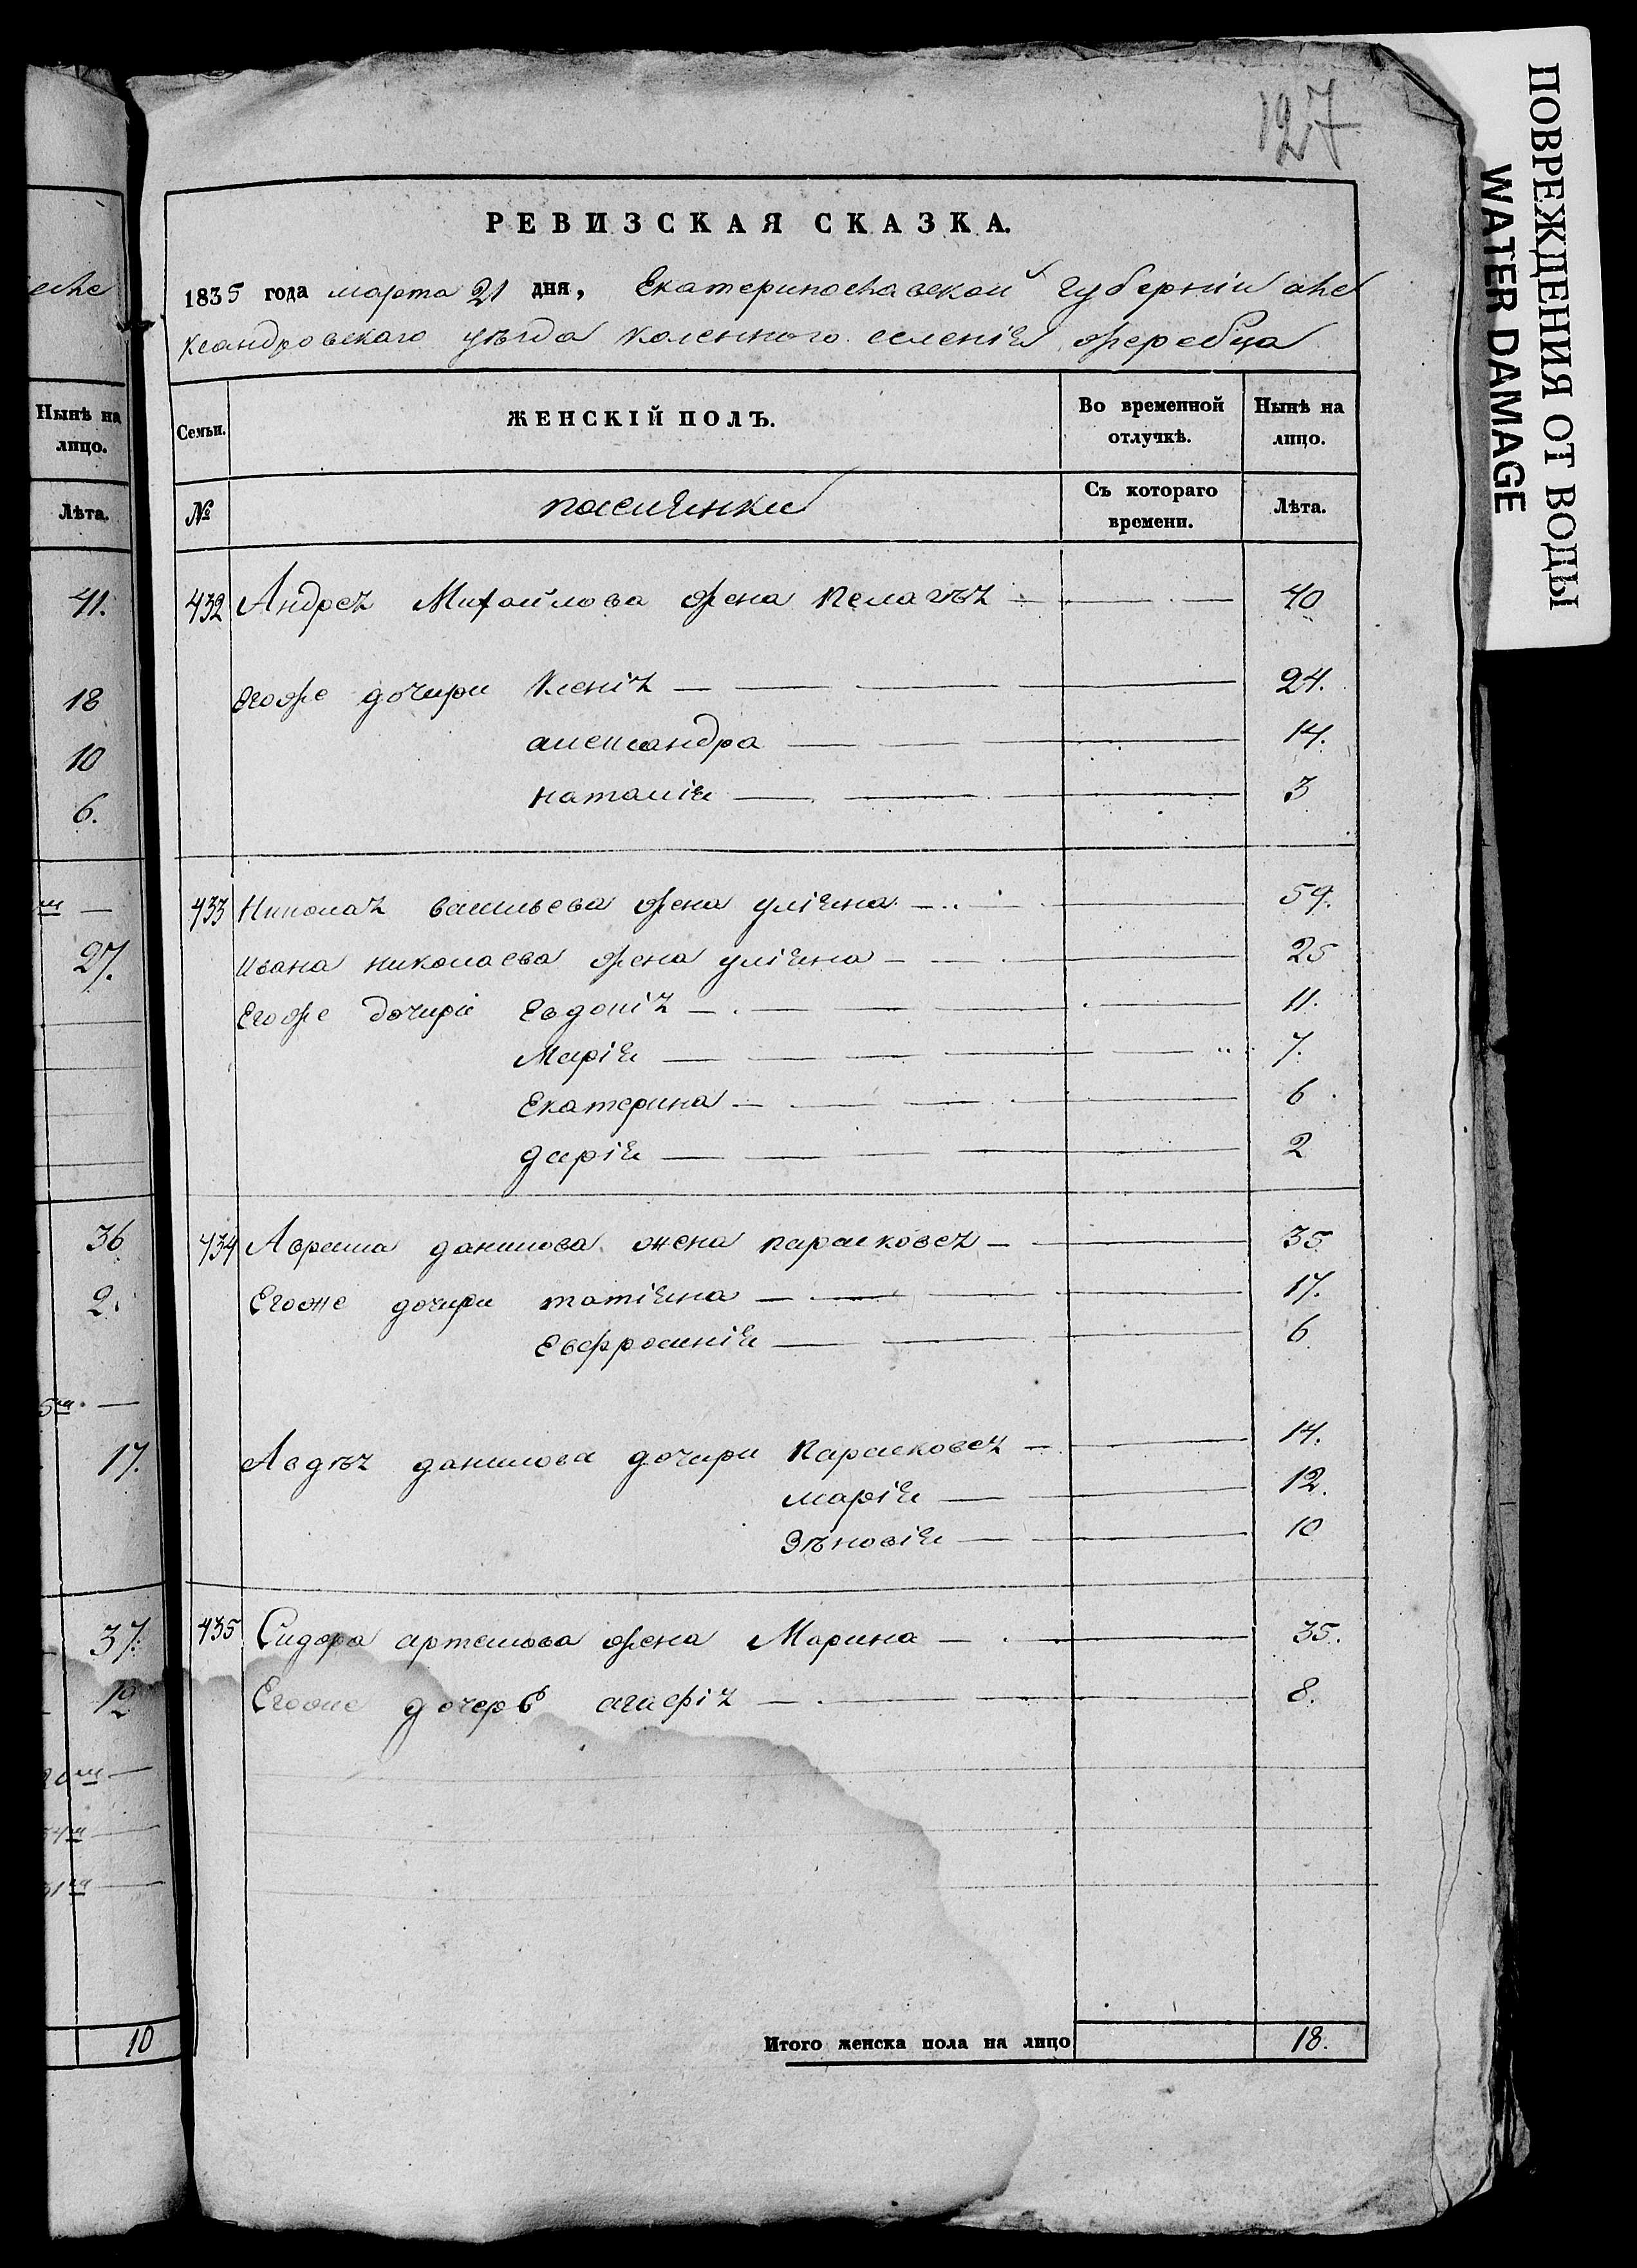 127
ПОВРЕЖДЕНИЯ ОТ ВОДЫ
WATER DAMAGE
РЕВИЗСКАЯ СКАЗКА.
1835 года марта 21 дня, Екатеринославской губернiи але
ксандровскаго уѣзда казенного селенiя жеребца
Семьи. ЖЕНСКIЙ ПОЛЪ. Во временной отлучкѣ. Нынѣ на лицо.
№ Съ котораго времени. Лѣта.
432 Андрея Михайлова жена пелагѣя 40
Егоже дочири Ксенiя 24.
александра 14.
наталiя 3
433 Николая васильева жена улiяна 59.
ивана николаева жена улiяна 25
Егоже дочири Евдокiя 11.
Марiя 7.
Екатерина 6
дарiя 2
434 Аврама данилова жена парасковея 35
Егоже дочири татiяна 17.
Евфросинiя 6
Авдѣя данилова дочири Парасковея 14.
марiя 12.
Зѣновiя 10
435 Сидора артемова жена Марина 35.
Егоже дочерь агафiя 8.
Итого женска пола на лицо 18.
Нынѣ на
лицо.
Лѣта.
41.
18
10
6.
27.
36
2.
17.
37.
19
10